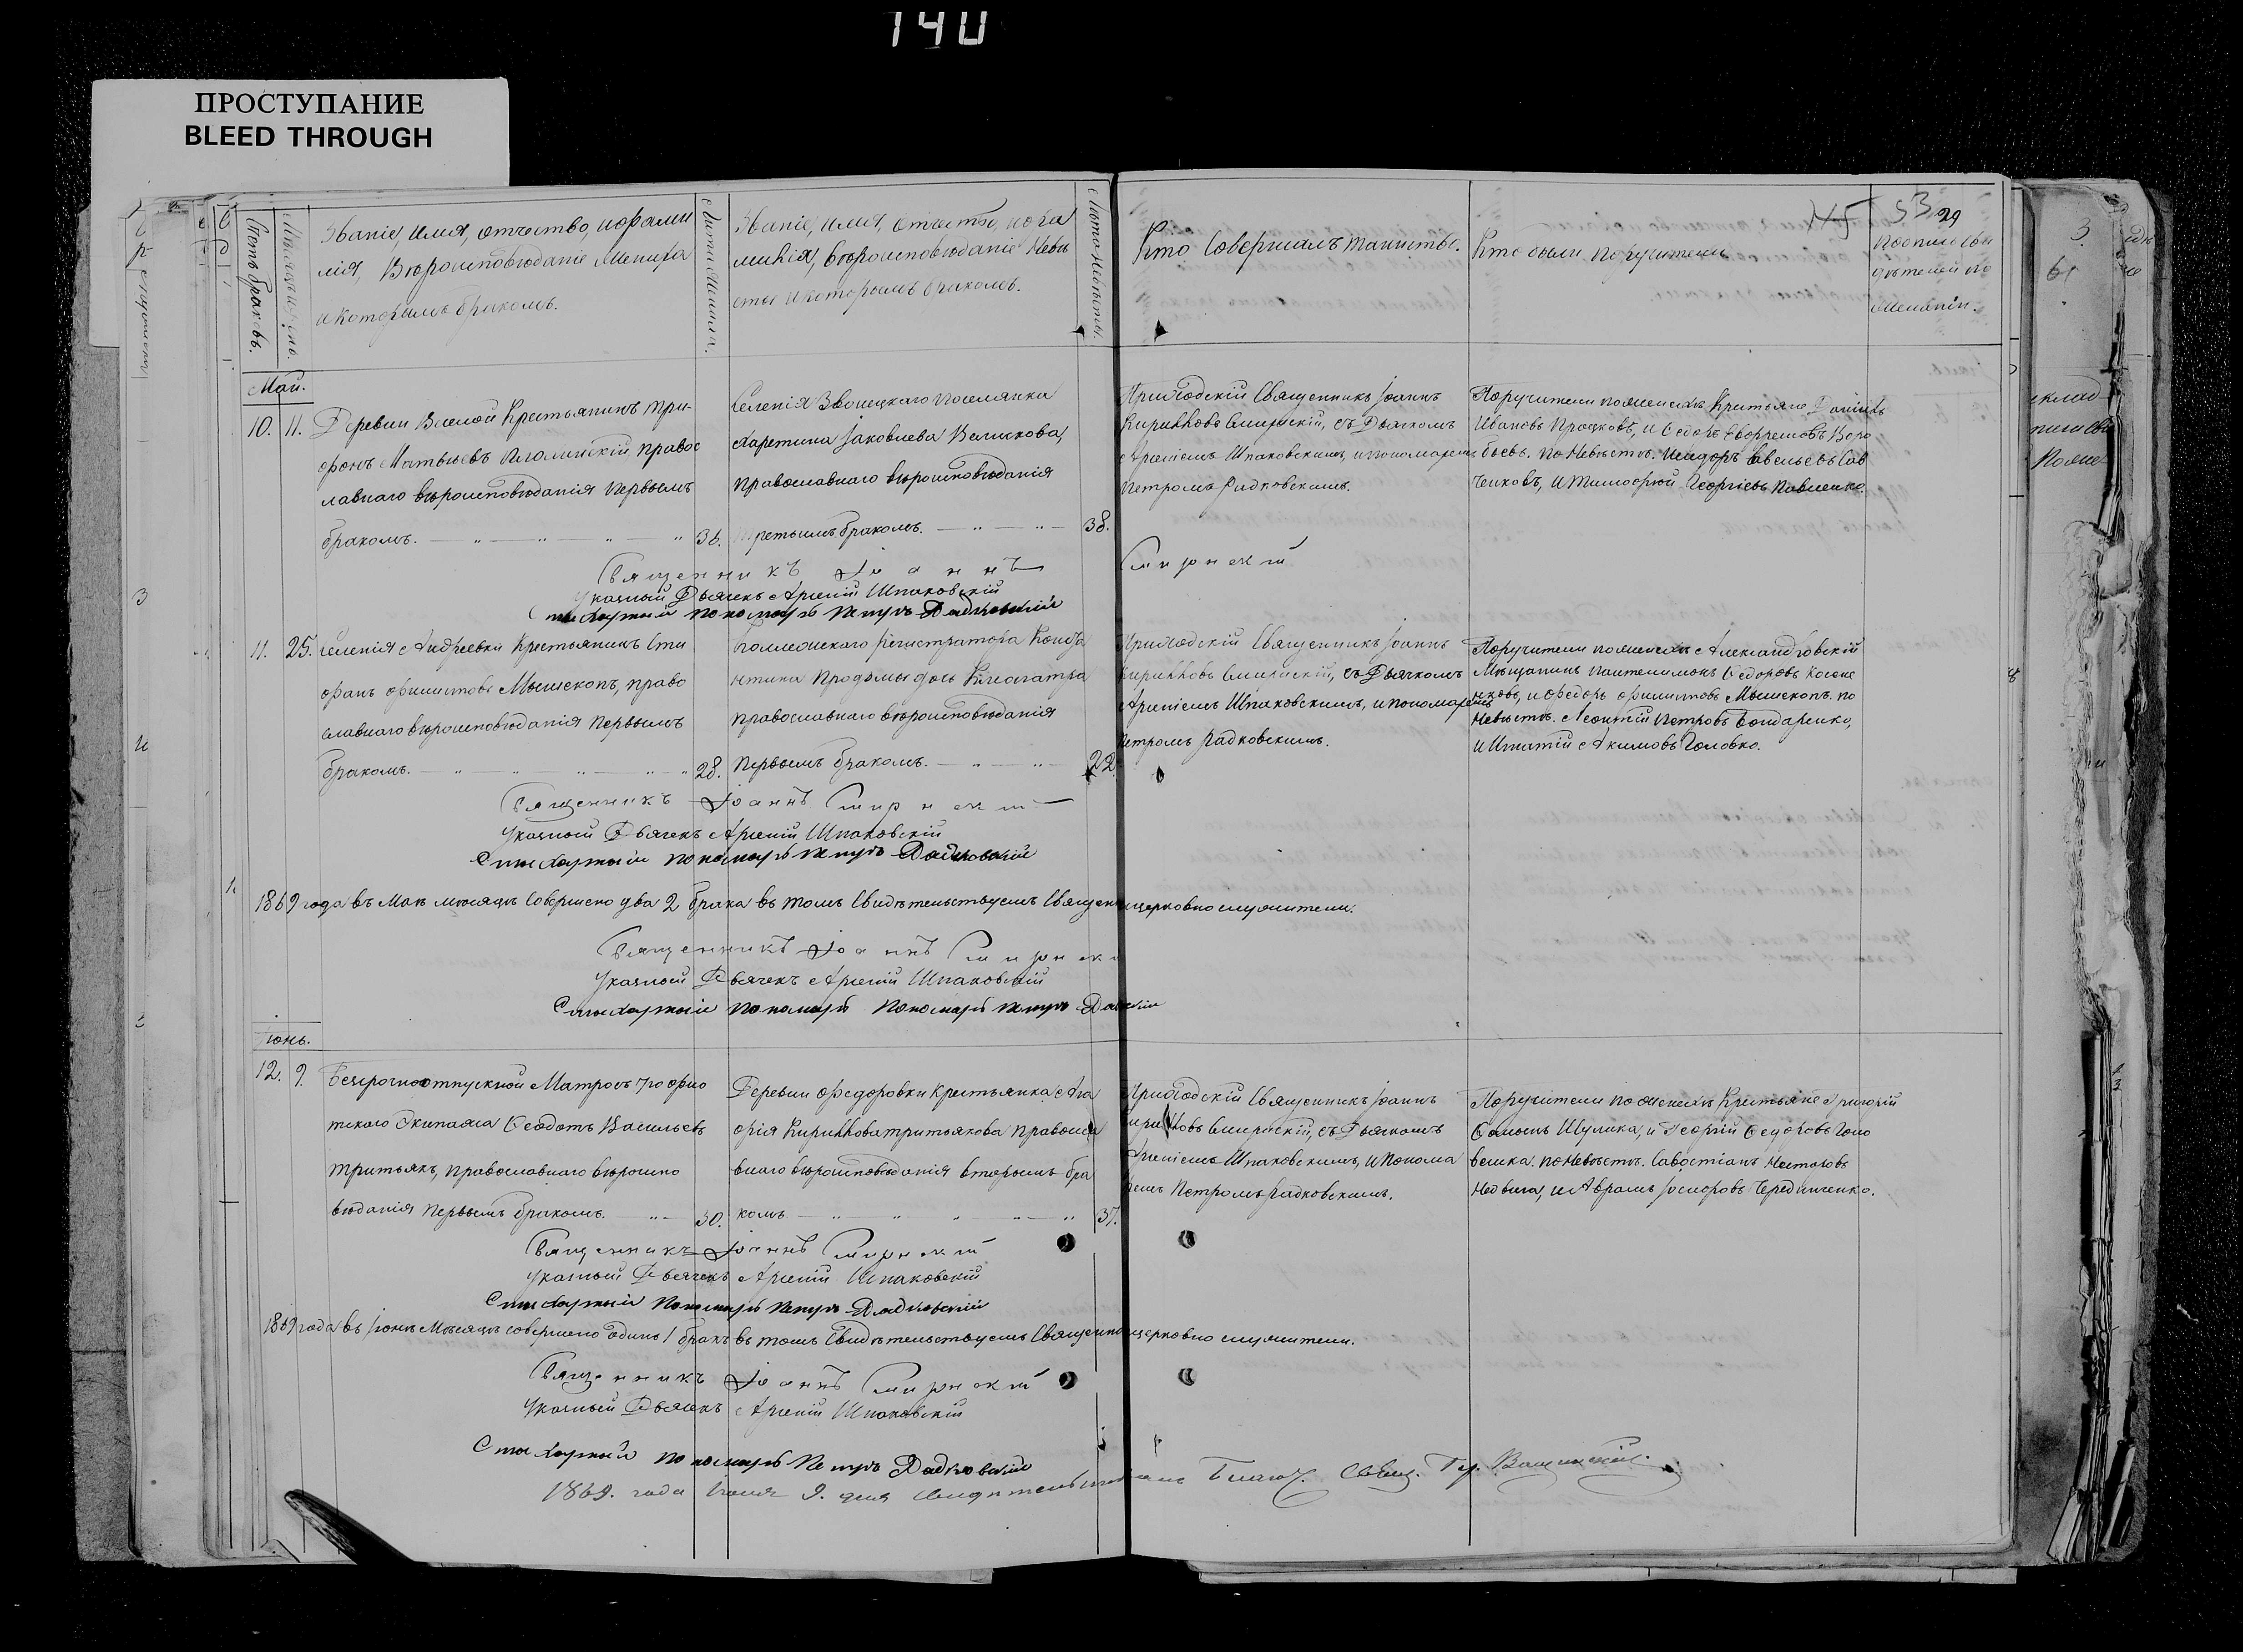 140
ПРОСТУПАНИЕ
BLEED THROUGH
Счетъ браковъ.
Мѣсяцъ и день.
Званіе, имя, отчество, и фами
лія, Вѣроисповѣданіе Жениха
и которымъ бракомъ.
Лѣта Жениха.
Званіе, имя, отчество,
Вѣроисповѣданіе Невѣ
сты и которымъ бракомъ.
Лѣта Невѣсты.
Кто совершалъ таинство.
Кто были поручители
53
29
Май.
10. 11. Деревни Крестьянинъ Три-
фонъ Матвѣевъ правос
лавнаго вѣроисповѣданія первымъ
бракомъ.
36.
Селенія Звонецкаго Поселянка
Харетина Іаковлева Великова,
православнаго вѣроисповѣданія
третьимъ бракомъ.
38.
Приходскій Священникъ Іоаннъ
Кирилловъ Смирнскій, съ Дьячкомъ
Арсеніемъ Шпаковскимъ, и пономаремъ
Петромъ Радковскимъ.
Поручители по женихѣ Крестьяне
Ивановъ и Федоръ Воро
бьевъ. по Невѣстѣ. Савельевъ Сав
ченковъ, и Тимофей Георгіевъ Павленко.
Священникъ Іоаннъ Смирнскій
Указный Дьячекъ Арсеній Шпаковскій
Стихарный пономарь Петръ Радковскій
11. 25. Селенія Андреевки Крестьянинъ Сти
фанъ Филиповъ право
славнаго вѣроисповѣданія первымъ
бракомъ.
28.
Коллежскаго Регистратора
дочь Клеопатра
православнаго вѣроисповѣданія
Первымъ бракомъ.
22
Приходскій Священникъ Іоаннъ
Кирилловъ Смирнскій, съ Дьячкомъ
Арсеніемъ Шпаковскимъ, и пономаремъ
Петромъ Радковскимъ.
Поручители по женихѣ Александровскій
Мѣщанинъ Пантелимонъ Федоровъ
и Федоръ Филиповъ по
Невѣстѣ. Леонтій Петровъ Бондаренко,
и Игнатій Акимовъ Головко.
Священникъ Іоаннъ Смирнскій
Указный Дьячекъ Арсеній Шпаковскій
Стихарный пономарь Петръ Радковскій
1869 года въ Маѣ мѣсяцѣ совершено два 2 брака въ томъ свидѣтельствуемъ Священноцерковнослужители.
Священникъ Іоаннъ Смирнскі
Указный Дьячекъ Арсеній Шпаковскій
Стихарный пономарь пономарь Петръ
Іюнь.
12. 9. Безсрочноотпускной Матросъ 7го фло
тскаго Экипажа Феодотъ Васильевъ
Третьякъ, православнаго вѣроиспо
вѣданія первымъ бракомъ.
30.
Деревни Федоровки Крестьянка Ага
фія Кириллова Третьякова правосла
внаго вѣроисповѣданія вторымъ бра
комъ
37.
Приходскій Священникъ Іоаннъ
Кирилловъ Смирнскій, съ Дьячкомъ
Арсеніемъ Шпаковскимъ, и понома
ремъ Петромъ Радковскимъ.
Поручители по женихѣ Крестьяне Григорій
Шулика, и Георгій Федоровъ Голо
вешка. по Невѣстѣ. Савостіанъ Несторовъ
и Аврамъ Чередниченко.
Священникъ Іоаннъ Смирнскій
Указный Дьячекъ Арсеній Шпаковскій
Стихарный пономарь Петръ Радковскій
1869 года въ Іюнѣ мѣсяцѣ совершено одинъ 1 бракъ въ томъ свидѣтельствуемъ Священноцерковнослужители.
Священникъ Іоаннъ Смирнскій
Указный Дьячекъ Арсеній Шпаковскій
Стихарный пономарь Петръ Радковскій
1869. года Іюня 9. дня